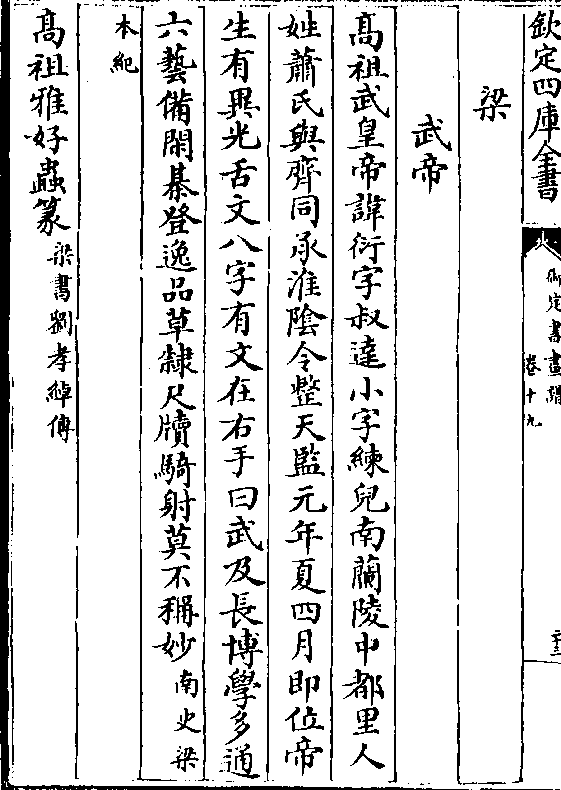 欽定四庫全書
御定書畫譜
卷十九
梁
武帝
髙祖武皇帝諱衍字叔達小字練兒南蘭陵中都里人
姓蕭氏與齊同承淮陰令整天監元年夏四月即位帝
生有異光舌文八字有文在右手曰武及長博學多通
六藝備閑棊登逸品草隸尺牘騎射莫不稱妙南史梁
本紀
髙祖雅好蟲篆梁書劉孝綽傳